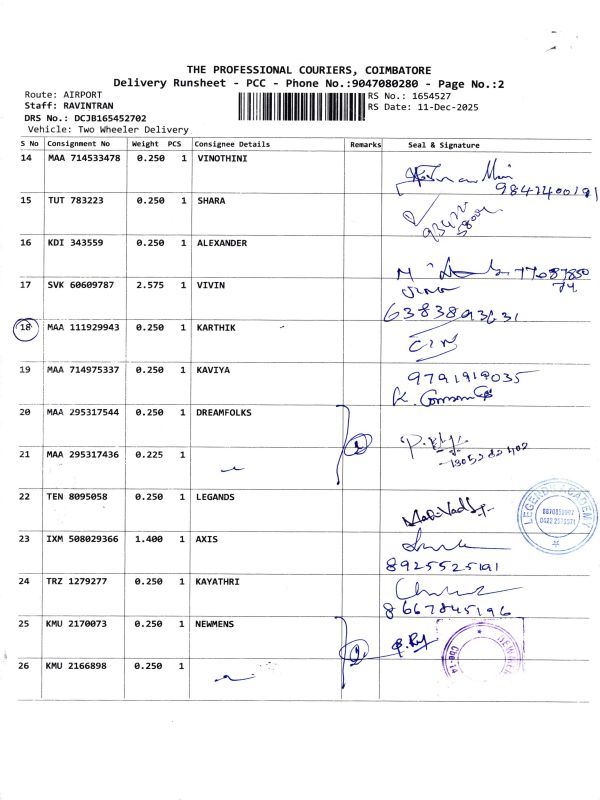 THE PROFESSIONAL COURIERS, COIMBATORE
Delivery Runsheet - PCC - Phone No.:9047080280 - Page No.:2
Route: AIRPORT RS No.: 1654527
Staff: RAVINTRAN RS Date: 11-Dec-2025
DRS No.: DCJB165452702
Vehicle: Two Wheeler Delivery
S No Consignment No Weight PCS Consignee Details Remarks Seal & Signature
14 MAA 714533478 0.250 1 VINOTHINI
15 TUT 783223 0.250 1 SHARA
16 KDI 343559 0.250 1 ALEXANDER
17 SVK 60609787 2.575 1 VIVIN
18 MAA 111929943 0.250 1 KARTHIK
19 MAA 714975337 0.250 1 KAVIYA 9791919035
20 MAA 295317544 0.250 1 DREAMFOLKS
21 MAA 295317436 0.225 1
22 TEN 8095058 0.250 1 LEGANDS LEGENDS ACADEMY
23 IXM 508029366 1.400 1 AXIS
8925525191
24 TRZ 1279277 0.250 1 KAYATHRI
8667845196
25 KMU 2170073 0.250 1 NEWMENS
26 KMU 2166898 0.250 1